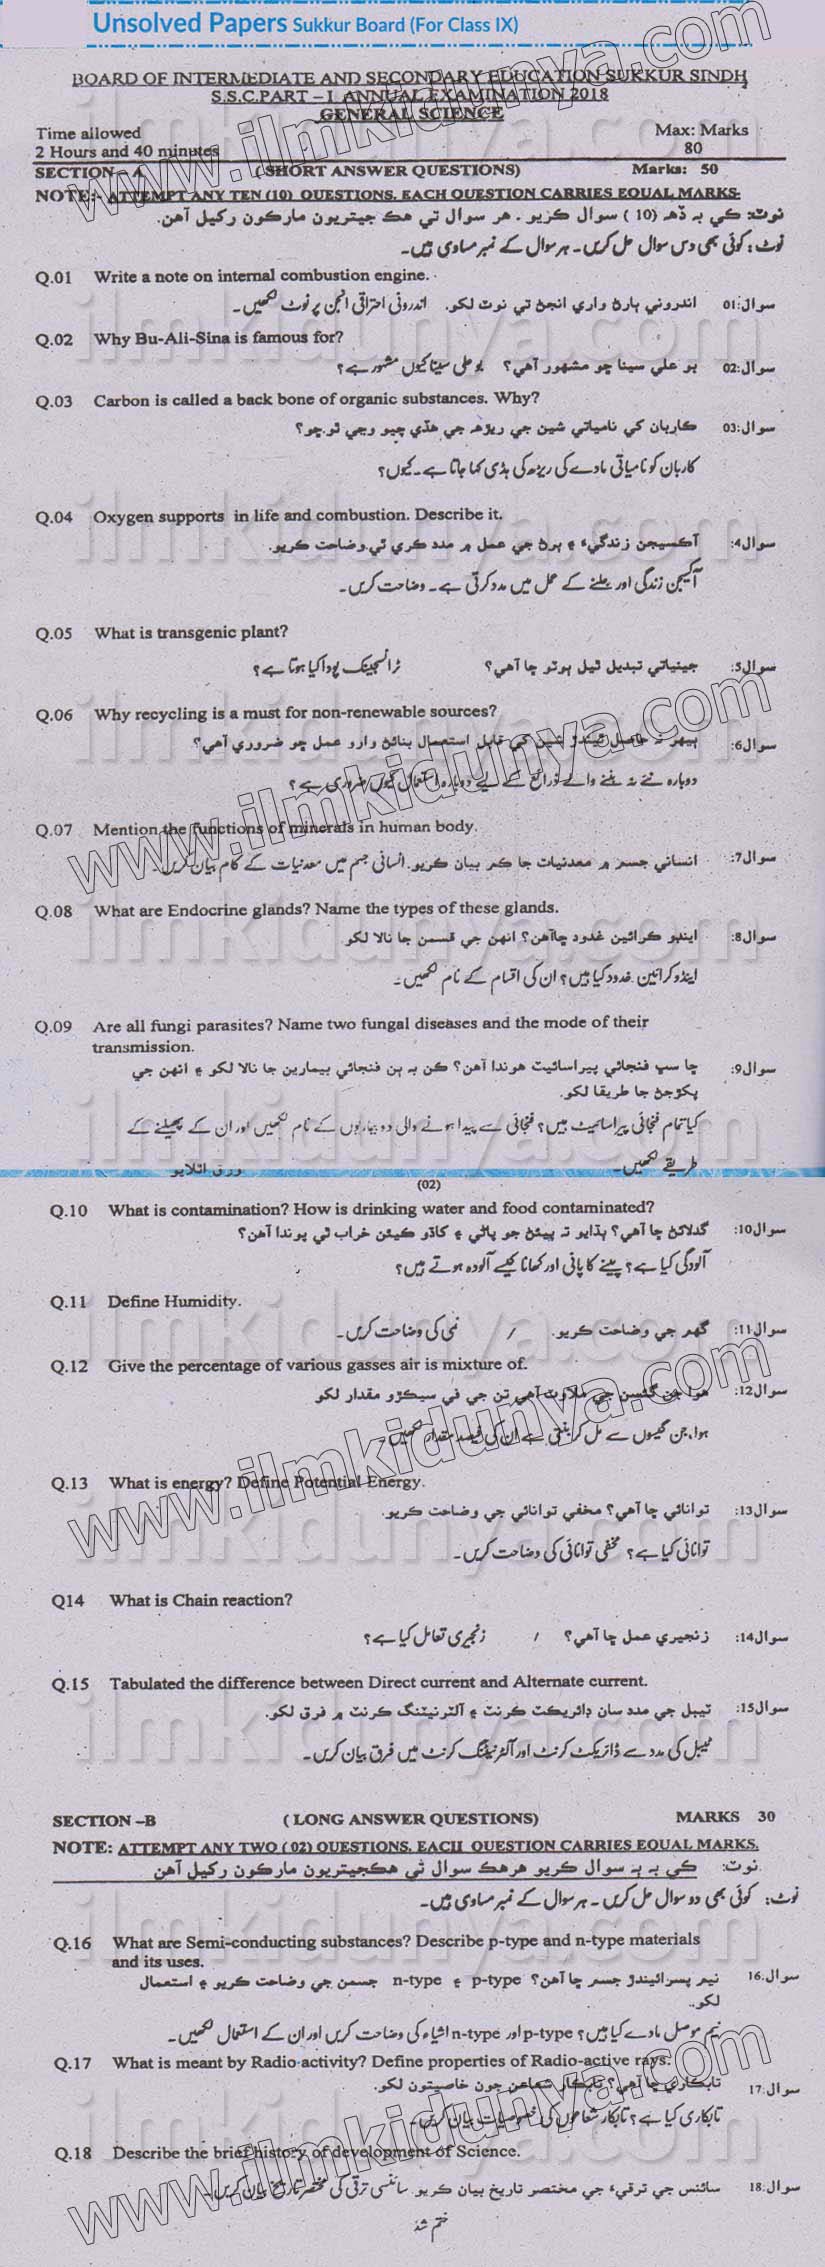 Unsolved Papers Sukkur Board (For Class IX)
BOARD OF INTERMEDIATE AND SECONDARY EDUCATION SUKKUR SINDH
S.S.C.PART – I ANNUAL EXAMINATION 2018
GENERAL SCIENCE
Time allowed Max: Marks
2 Hours and 40 minutes 80
SECTION – A (SHORT ANSWER QUESTIONS) Marks: 50
NOTE:- ATTEMPT ANY TEN (10) QUESTIONS. EACH QUESTION CARRIES EQUAL MARKS.
نوٽ: ڪي به ڏهه (10) سوال ڪريو. هر سوال تي هڪ جيتريون مارڪون رکيل آهن.
نوٹ: کوئی بھی دس سوال حل کریں۔ ہر سوال کے نمبر مساوی ہیں۔
Q.01 Write a note on internal combustion engine.
سوال:01 اندروني ٻارڻ واري انجڻ تي نوٽ لکو. اندرونی احتراقی انجن پر نوٹ لکھیں۔
Q.02 Why Bu-Ali-Sina is famous for?
سوال:02 بو علي سينا ڇو مشهور آهي؟ بو علی سینا کیوں مشہور ہے؟
Q.03 Carbon is called a back bone of organic substances. Why?
سوال:03 ڪاربان کي نامياتي شين جي ريڙهه جي هڏي چيو وڃي ٿو ڇو؟
کاربان کو نامیاتی مادے کی ریڑھ کی ہڈی کہا جاتا ہے۔ کیوں؟
Q.04 Oxygen supports in life and combustion. Describe it.
سوال4: آڪسيجن زندگيءَ ۽ ٻرڻ جي عمل ۾ مدد ڪري ٿي وضاحت ڪريو.
آکسیجن زندگی اور جلنے کے عمل میں مدد کرتی ہے۔ وضاحت کریں۔
Q.05 What is transgenic plant?
سوال5: جينياتي تبديل ٿيل ٻوٽو ڇا آهي؟ ٹرانسجینک پودا کیا ہوتا ہے؟
Q.06 Why recycling is a must for non-renewable sources?
سوال6: ٻيهر نہ حاصل ٿيندڙ شين کي قابل استعمال بنائڻ وارو عمل ڇو ضروري آهي؟
دوبارہ نئے نہ بننے والے ذرائع کے لیے دوبارہ استعمال کیوں ضروری ہے؟
Q.07 Mention the functions of minerals in human body.
سوال7: انساني جسم ۾ معدنيات جا ڪم بيان ڪريو. انسانی جسم میں معدنیات کے کام بیان کریں۔
Q.08 What are Endocrine glands? Name the types of these glands.
سوال8: اينڊو ڪرائين غدود ڇاآهن؟ انهن جي قسمن جا نالا لکو
اینڈوکرائین غدود کیا ہیں؟ ان کی اقسام کے نام لکھیں۔
Q.09 Are all fungi parasites? Name two fungal diseases and the mode of their
transmission.
سوال9: ڇا سڀ فنجائي پيراسائيٽ هوندا آهن؟ ڪن بہ ٻن فنجائي بيمارين جا نالا لکو ۽ انهن جي
پکڙجڻ جا طريقا لکو.
کیا تمام فنجائی پیراسائیٹ ہیں؟ فنجائی سے پیدا ہونے والی دو بیماریوں کے نام لکھیں اور ان کے پھیلنے کے
طریقے لکھیں۔ ورق اٿلايو
(02)
Q.10 What is contamination? How is drinking water and food contaminated?
سوال10: گدلائڻ ڇا آهي؟ ٻڌايو تہ پيئڻ جو پاڻي ۽ کاڌو ڪيئن خراب ٿي پوندا آهن؟
آلودگی کیا ہے؟ پینے کا پانی اور کھانا کیسے آلودہ ہوتے ہیں؟
Q.11 Define Humidity.
سوال11: گھم جي وضاحت ڪريو. / نمی کی وضاحت کریں۔
Q.12 Give the percentage of various gasses air is mixture of.
سوال12: هوا جن گئسن جي ملاوٽ آهي تن جي في سيڪڙو مقدار لکو
ہوا، جن گیسوں سے مل کر بنتی ہے ان کی فیصد مقدار لکھیں۔
Q.13 What is energy? Define Potential Energy.
سوال13: توانائي ڇا آهي؟ مخفي توانائي جي وضاحت ڪريو.
توانائی کیا ہے؟ مخفی توانائی کی وضاحت کریں۔
Q14 What is Chain reaction?
سوال14: زنجيري عمل ڇا آهي؟ / زنجیری تعامل کیا ہے؟
Q.15 Tabulated the difference between Direct current and Alternate current.
سوال15: ٽيبل جي مدد سان ڊائريڪٽ ڪرنٽ ۽ آلٽرنيٽنگ ڪرنٽ ۾ فرق لکو.
ٹیبل کی مدد سے ڈائریکٹ کرنٹ اور آلٹرنیٹنگ کرنٹ میں فرق بیان کریں۔
SECTION –B (LONG ANSWER QUESTIONS) MARKS 30
NOTE: ATTEMPT ANY TWO (02) QUESTIONS. EACH QUESTION CARRIES EQUAL MARKS.
نوٽ: ڪي بہ ٻہ سوال ڪريو هرهڪ سوال تي هڪجيتريون مارڪون رکيل آهن
نوٹ: کوئی بھی دو سوال حل کریں۔ ہر سوال کے نمبر مساوی ہیں۔
Q.16 What are Semi-conducting substances? Describe p-type and n-type materials
and its uses.
سوال:16 نيم پسرائيندڙ جسم ڇا آهن؟ p-type ۽ n-type جسمن جي وضاحت ڪريو ۽ استعمال
لکو.
نیم موصل مادے کیا ہیں؟ p-type اور n-type اشیاء کی وضاحت کریں اور ان کے استعمال لکھیں۔
Q.17 What is meant by Radio activity? Define properties of Radio-active rays.
سوال:17 تابڪاري ڇا آهي؟ تابڪار شعاعن جون خاصيتون لکو.
تابکاری کیا ہے؟ تابکار شعاعوں کی خصوصیات بیان کریں۔
Q.18 Describe the brief history of development of Science.
سوال:18 سائنس جي ترقيءَ جي مختصر تاريخ بيان ڪريو. سائنسی ترقی کی مختصر تاریخ بیان کریں۔
ختم شد
www.ilmkidunya.com
www.ilmkidunya.com
www.ilmkidunya.com
www.ilmkidunya.com